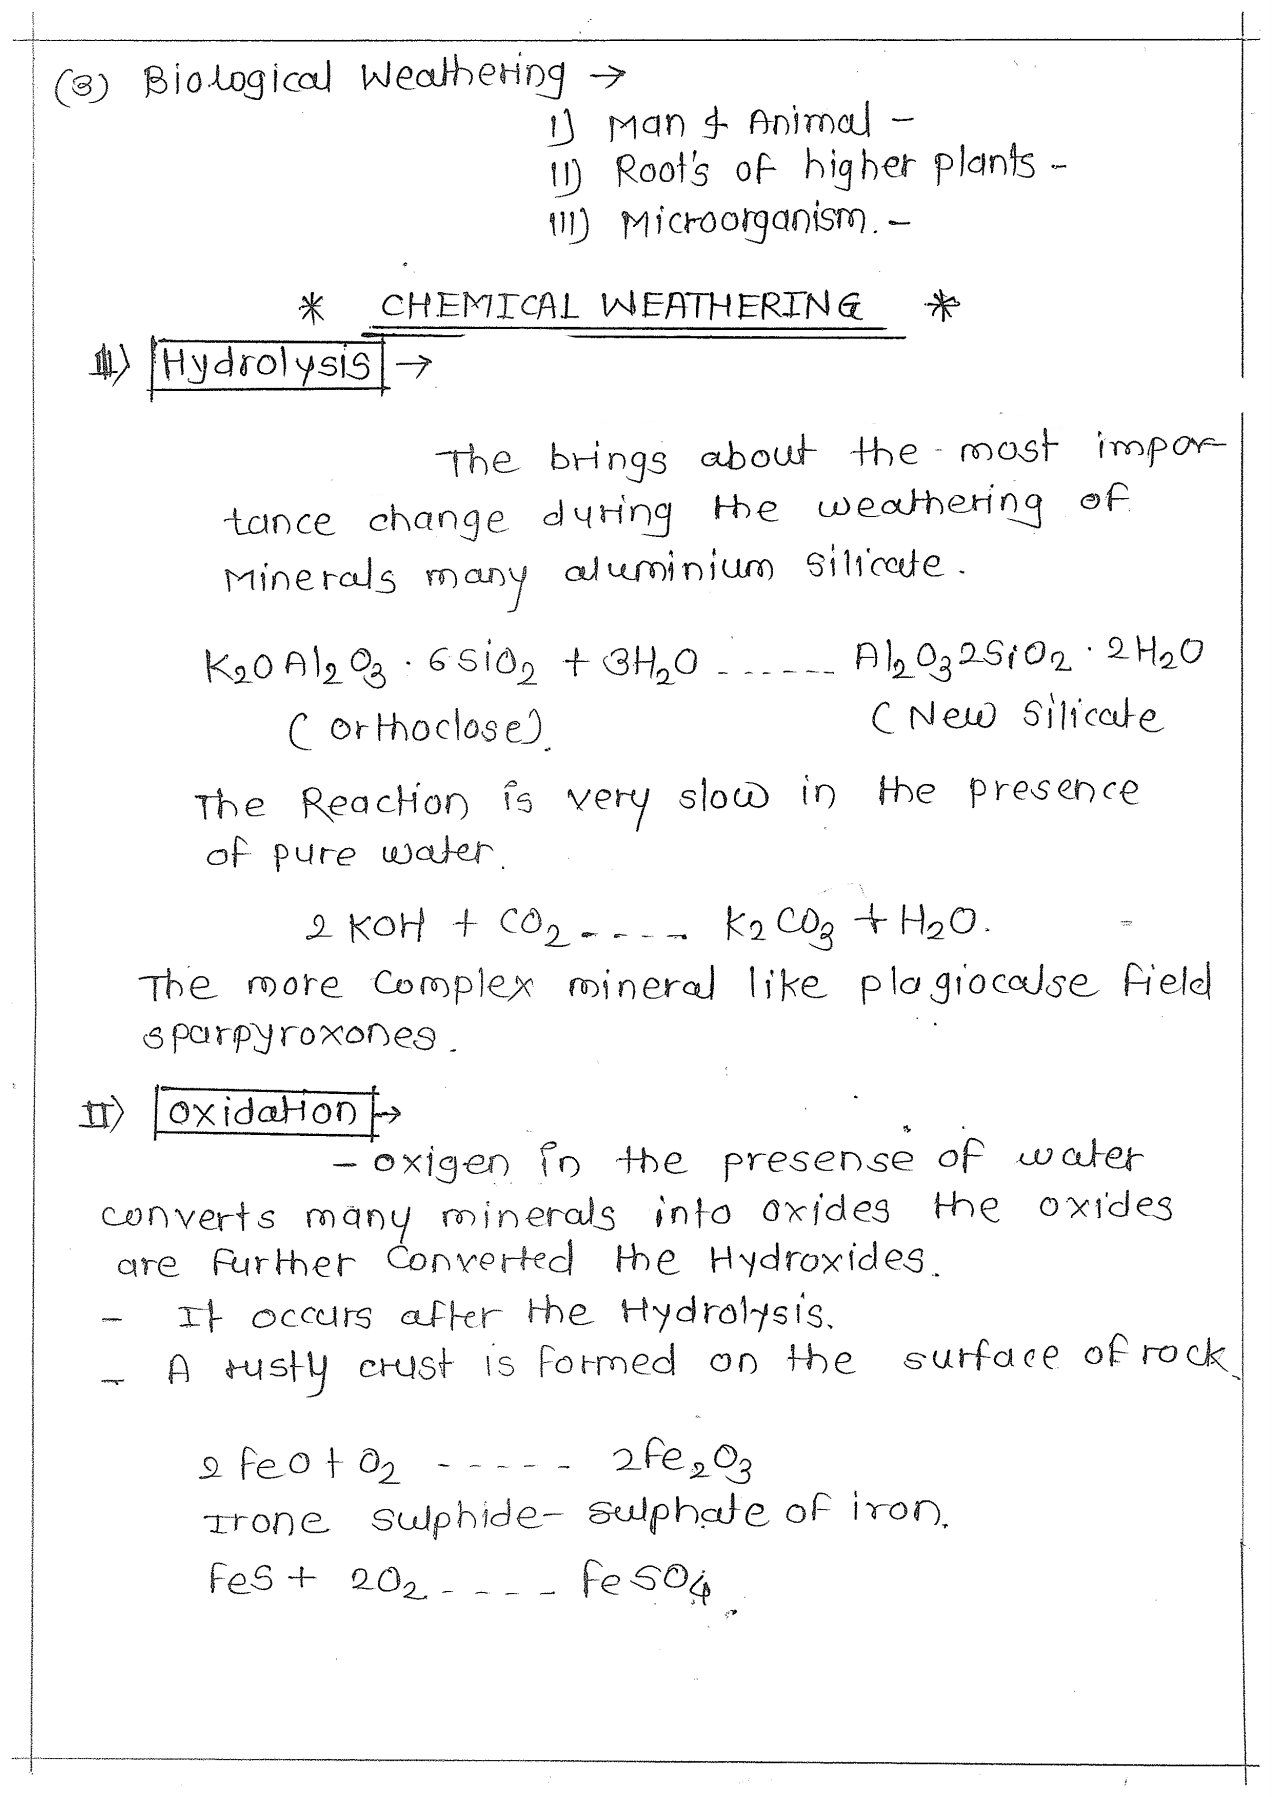 (3) Biological Weathering →
I) Man & Animal -
II) Root's of higher plants -
III) Microorganism. -
* CHEMICAL WEATHERING *
I) Hydrolysis →
The brings about the most impor-
tance change during the weathering of
Minerals many aluminium silicate.
K₂OAl₂O₃ · 6SiO₂ + 3H₂O ...... Al₂O₃2SiO₂ · 2H₂O
(Orthoclose). (New Silicate
The Reaction is very slow in the presence
of pure water.
2 KOH + CO₂ ---- K₂CO₃ + H₂O.
The more complex mineral like plagiocalse field
sparpyroxones.
II) Oxidation →
- oxigen in the presense of water
converts many minerals into oxides the oxides
are further converted the Hydroxides.
- It occurs after the Hydrolysis.
- A rusty crust is formed on the surface of rock
2 FeO + O₂ ----- 2Fe₂O₃
Irone sulphide- sulphate of iron.
FeS + 2O₂ ---- FeSO₄.